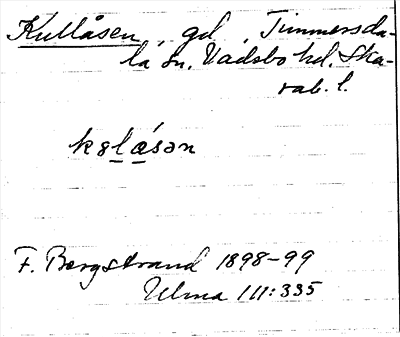 Kullåsen, gd, Timmersda-
la sn. Vadsbo hd. Ska-
rab. l.
k8låsən
F. Bergstrand 1898-99
Ulma 111:335